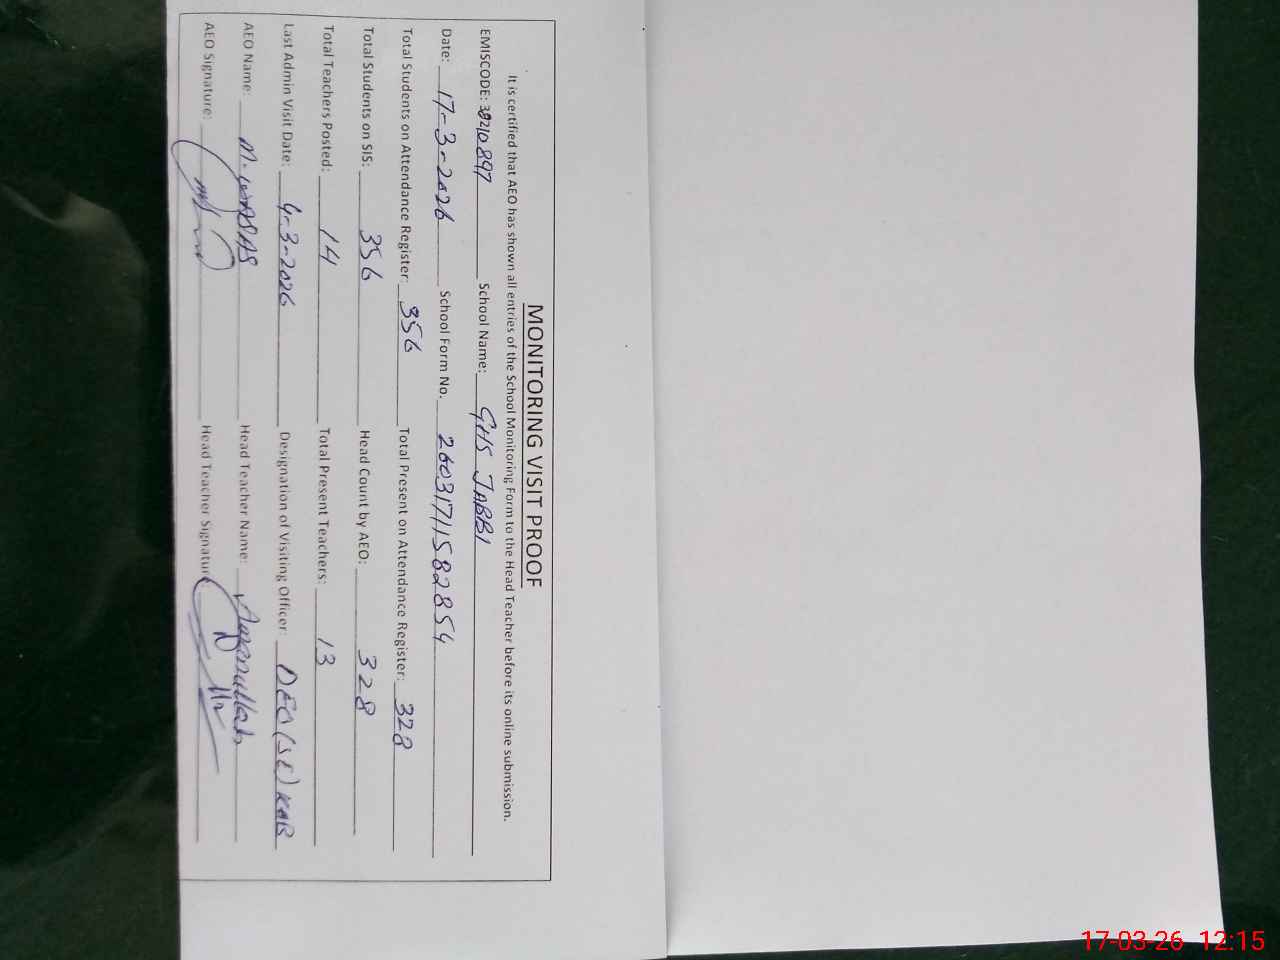 MONITORING VISIT PROOF
It is certified that AEO has shown all entries of the School Monitoring Form to the Head Teacher before its online submission.
EMISCODE: 38210897 School Name: GHS JABBI
Date: 17-3-2026 School Form No. 260317115 82854
Total Students on Attendance Register: 356 Total Present on Attendance Register: 328
Total Students on SIS: 356 Head Count by AEO: 328
Total Teachers Posted: 14 Total Present Teachers: 13
Last Admin Visit Date: 4-3-2026 Designation of Visiting Officer: DEO (SE) KAB
AEO Name: Head Teacher Name:
AEO Signature: Head Teacher Signature:
17-03-26 12:15